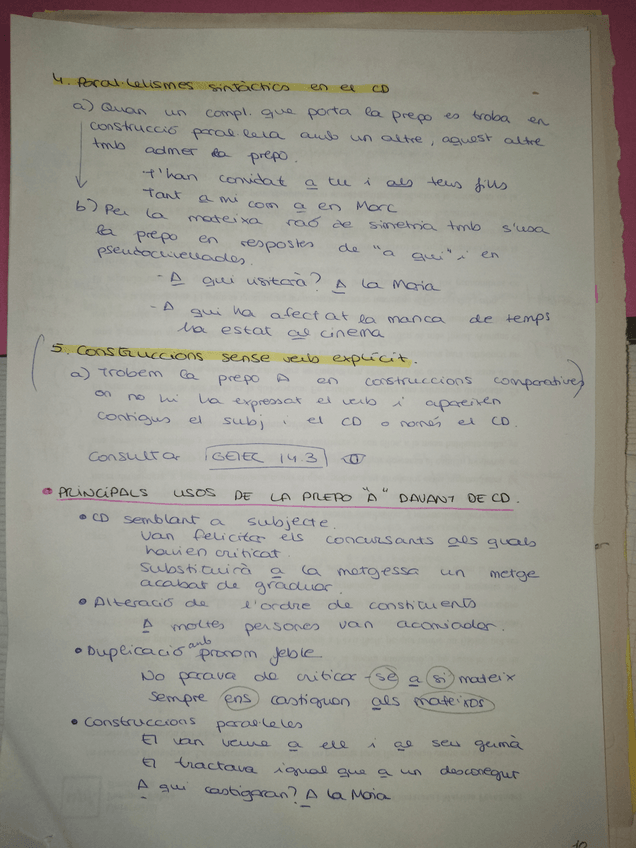 4. Paral·lelismes sintàctics en el CD
a) Quan un compl. que porta la prepo es troba en
construcció paral·lela amb un altre, aquest altre
tmb admet la prepo.
T'han convidat a tu i als teus fills
Tant a mi com a en Marc
b) Per la mateixa raó de simetria tmb s'usa
la prepo en respostes de "a qui" i en
pseudoclivellades.
- A qui visitarà? A la Maria
- A qui ha afectat la manca de temps
ha estat al cinema
5. Construccions sense verb explícit.
a) Trobem la prepo A en construccions comparatives
on no hi ha expressat el verb i apareixen
contigus el subj i el CD o només el CD.
Consultar GEIEC 14.3
• PRINCIPALS USOS DE LA PREPO "A" DAVANT DE CD.
• CD semblant a subjecte.
Van felicitar els concursants als quals
havien criticat.
Substituirà a la metgessa un metge
acabat de graduar.
• Alteració de l'ordre de constituents
A moltes persones van acomiadar.
• Duplicació amb pronom feble
No parava de criticar-se a si mateix
Sempre ens castiguen als mateixos
• Construccions paral·leles
El van veure a ell i al seu germà
El tractava igual que a un desconegut
A qui castigaran? A la Maria